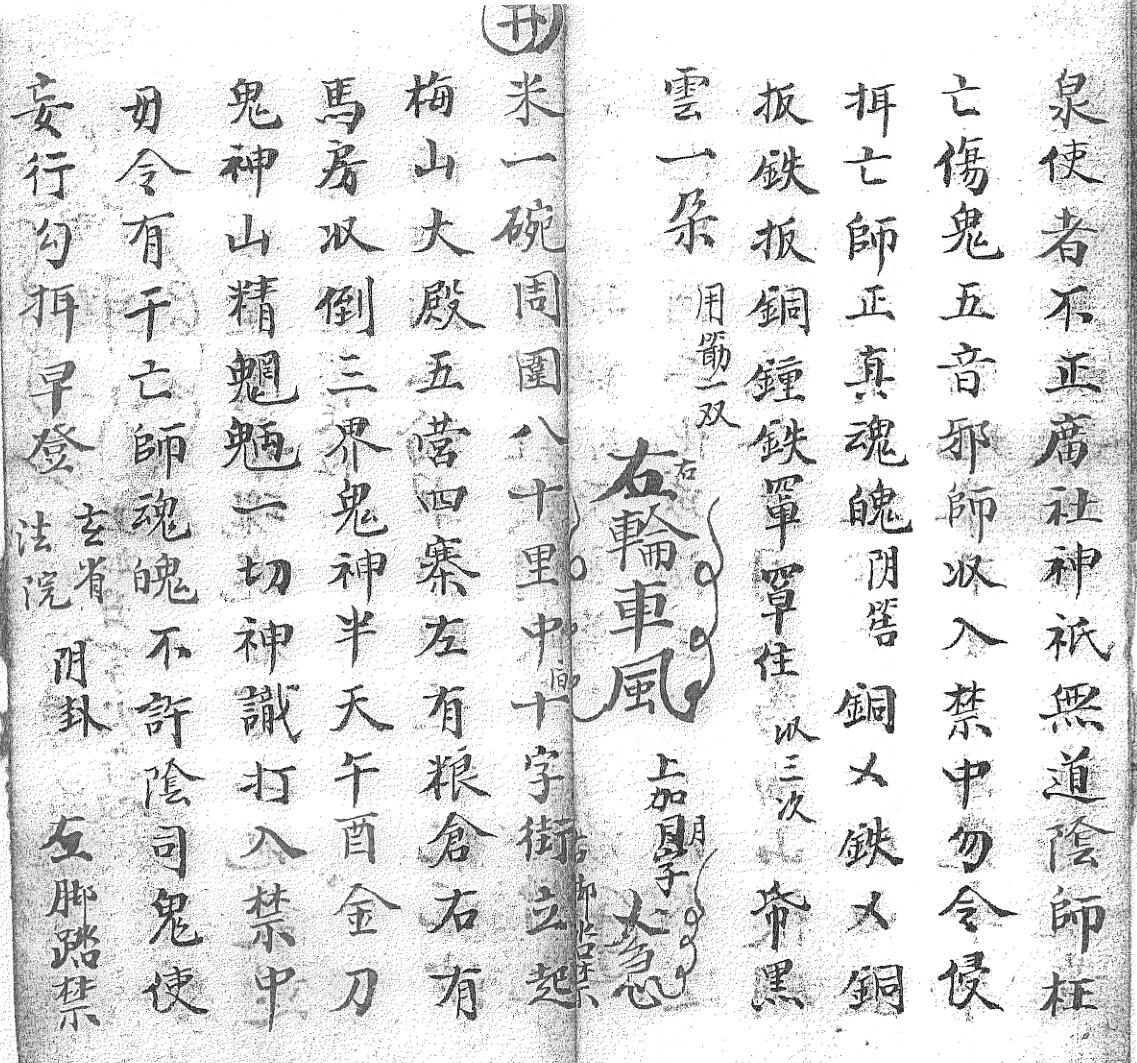 泉使者不正庿社神祇無道陰師枉
亡傷鬼五音邪師収入禁中勿令侵
挕亡師正真魂魄阴筶銅㐅鉄㐅銅
扳鉄扳銅鍾鉄罩罩住収三次帋黒
雲一朵用筯一双
右輪車風上加
急
米一碗周圍八十里中間十字街立起
梅山大殿五营四寨左有粮倉右有
馬房収倒三界鬼神半天午酉金刀
鬼神山精魍魎一切神識打入禁中
毋令有干亡師魂魄不許陰司鬼使
妄行勾挕早登玄省法院阴卦左脚踏禁